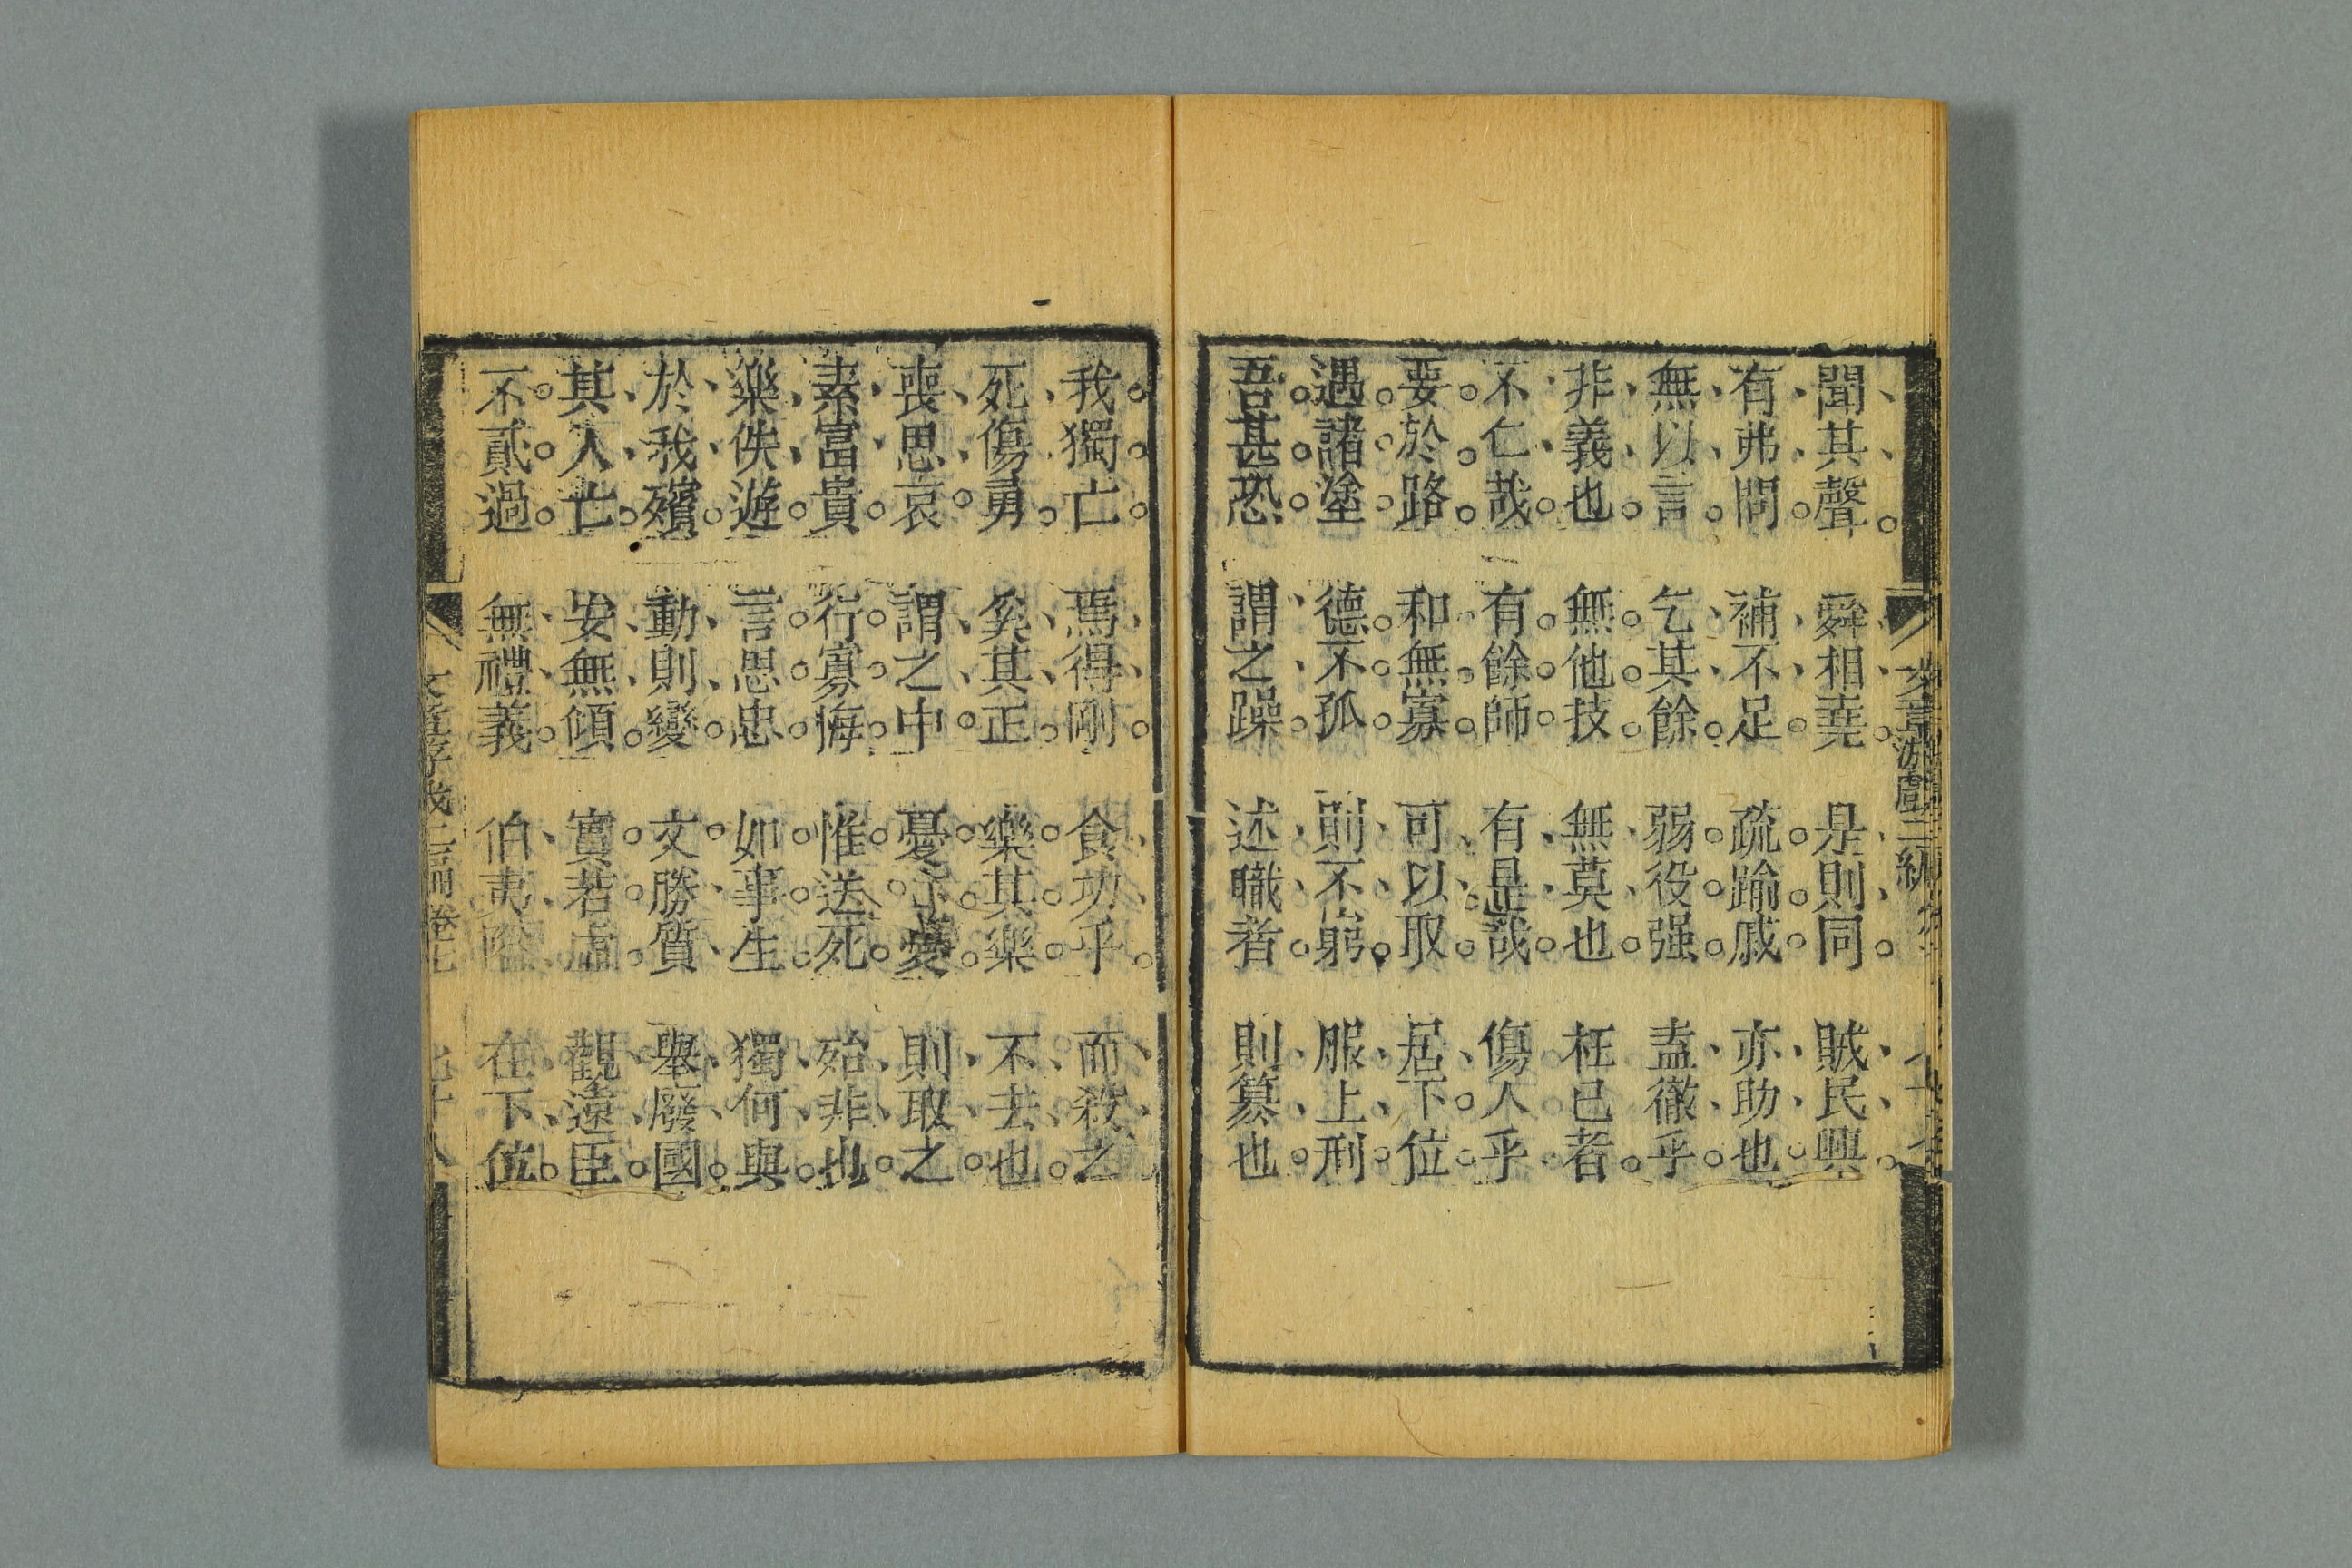 聞其聲 舜相堯 是則同 賊民興
有弗問 補不足 疏踰戚 亦助也
無以言 乞其餘 弱役强 盍徹乎
非義也 無他技 無莫也 枉己者
不仁哉 有餘師 有是哉 傷人乎
要於路 和無寡 可以取 居下位
遇諸塗 德不孤 則不窮 服上刑
吾甚恐 謂之躁 述職者 則篡也
我獨亡 焉得剛 食功乎 而殺之
死傷勇 矣其正 樂其樂 不去也
喪思哀 謂之中 憂亦憂 則取之
素富貴 行寡悔 惟送死 殆非也
樂佚遊 言思忠 如事生 獨何與
於我殯 動則變 文勝質 舉廢國
其人亡 安無傾 實若虛 觀遠臣
不貳過 無禮義 伯夷隘 在下位